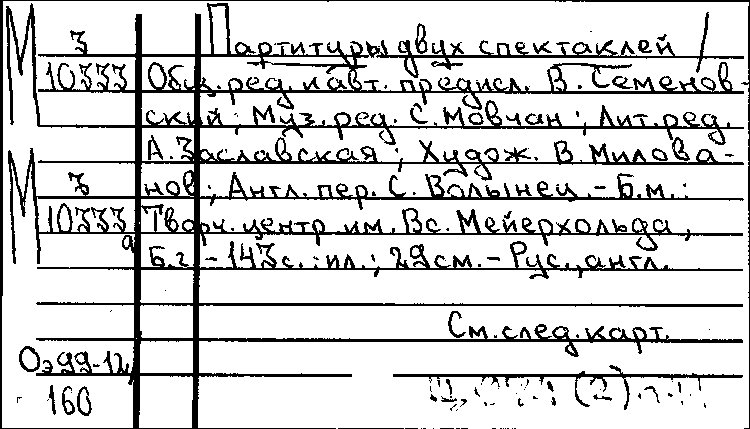 М З Партитуры двух спектаклей /
10333 Общ.ред. и авт. предисл. В. Семенов-
ский; Муз.ред. С.Мовчан; Лит.ред.
А.Заславская; Худож. В.Милова-
М З нов; Англ.пер. С.Волынец.-Б.м.:
10333а Творч.центр им. Вс.Мейерхольда,
Б.г.-143с.:ил.; 29см.-Рус.,англ.
См.след.карт.
Оэ99-12,
160